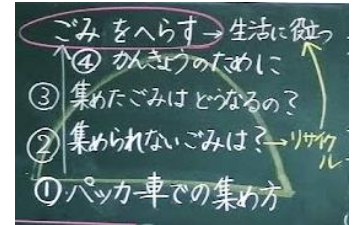 ごみをへらす→生活に役つ
④かんきょうのために
③集めたごみはどうなるの?
②集められないごみは?→リサイクル
①パッカー車での集め方